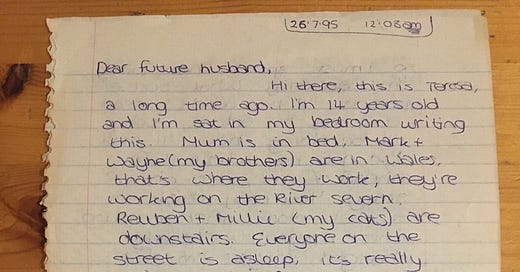 26·7·95 12:08am
Dear future husband,
Hi there, this is Teresa,
a long time ago. I'm 14 years old
and I'm sat in my bedroom writing
this. Mum is in bed, Mark +
Wayne (my brothers) are in Wales,
that's where they work, they're
working on the River severn.
Reuben + Millie (my cats) are
downstairs. Everyone on the
street is asleep, it's really